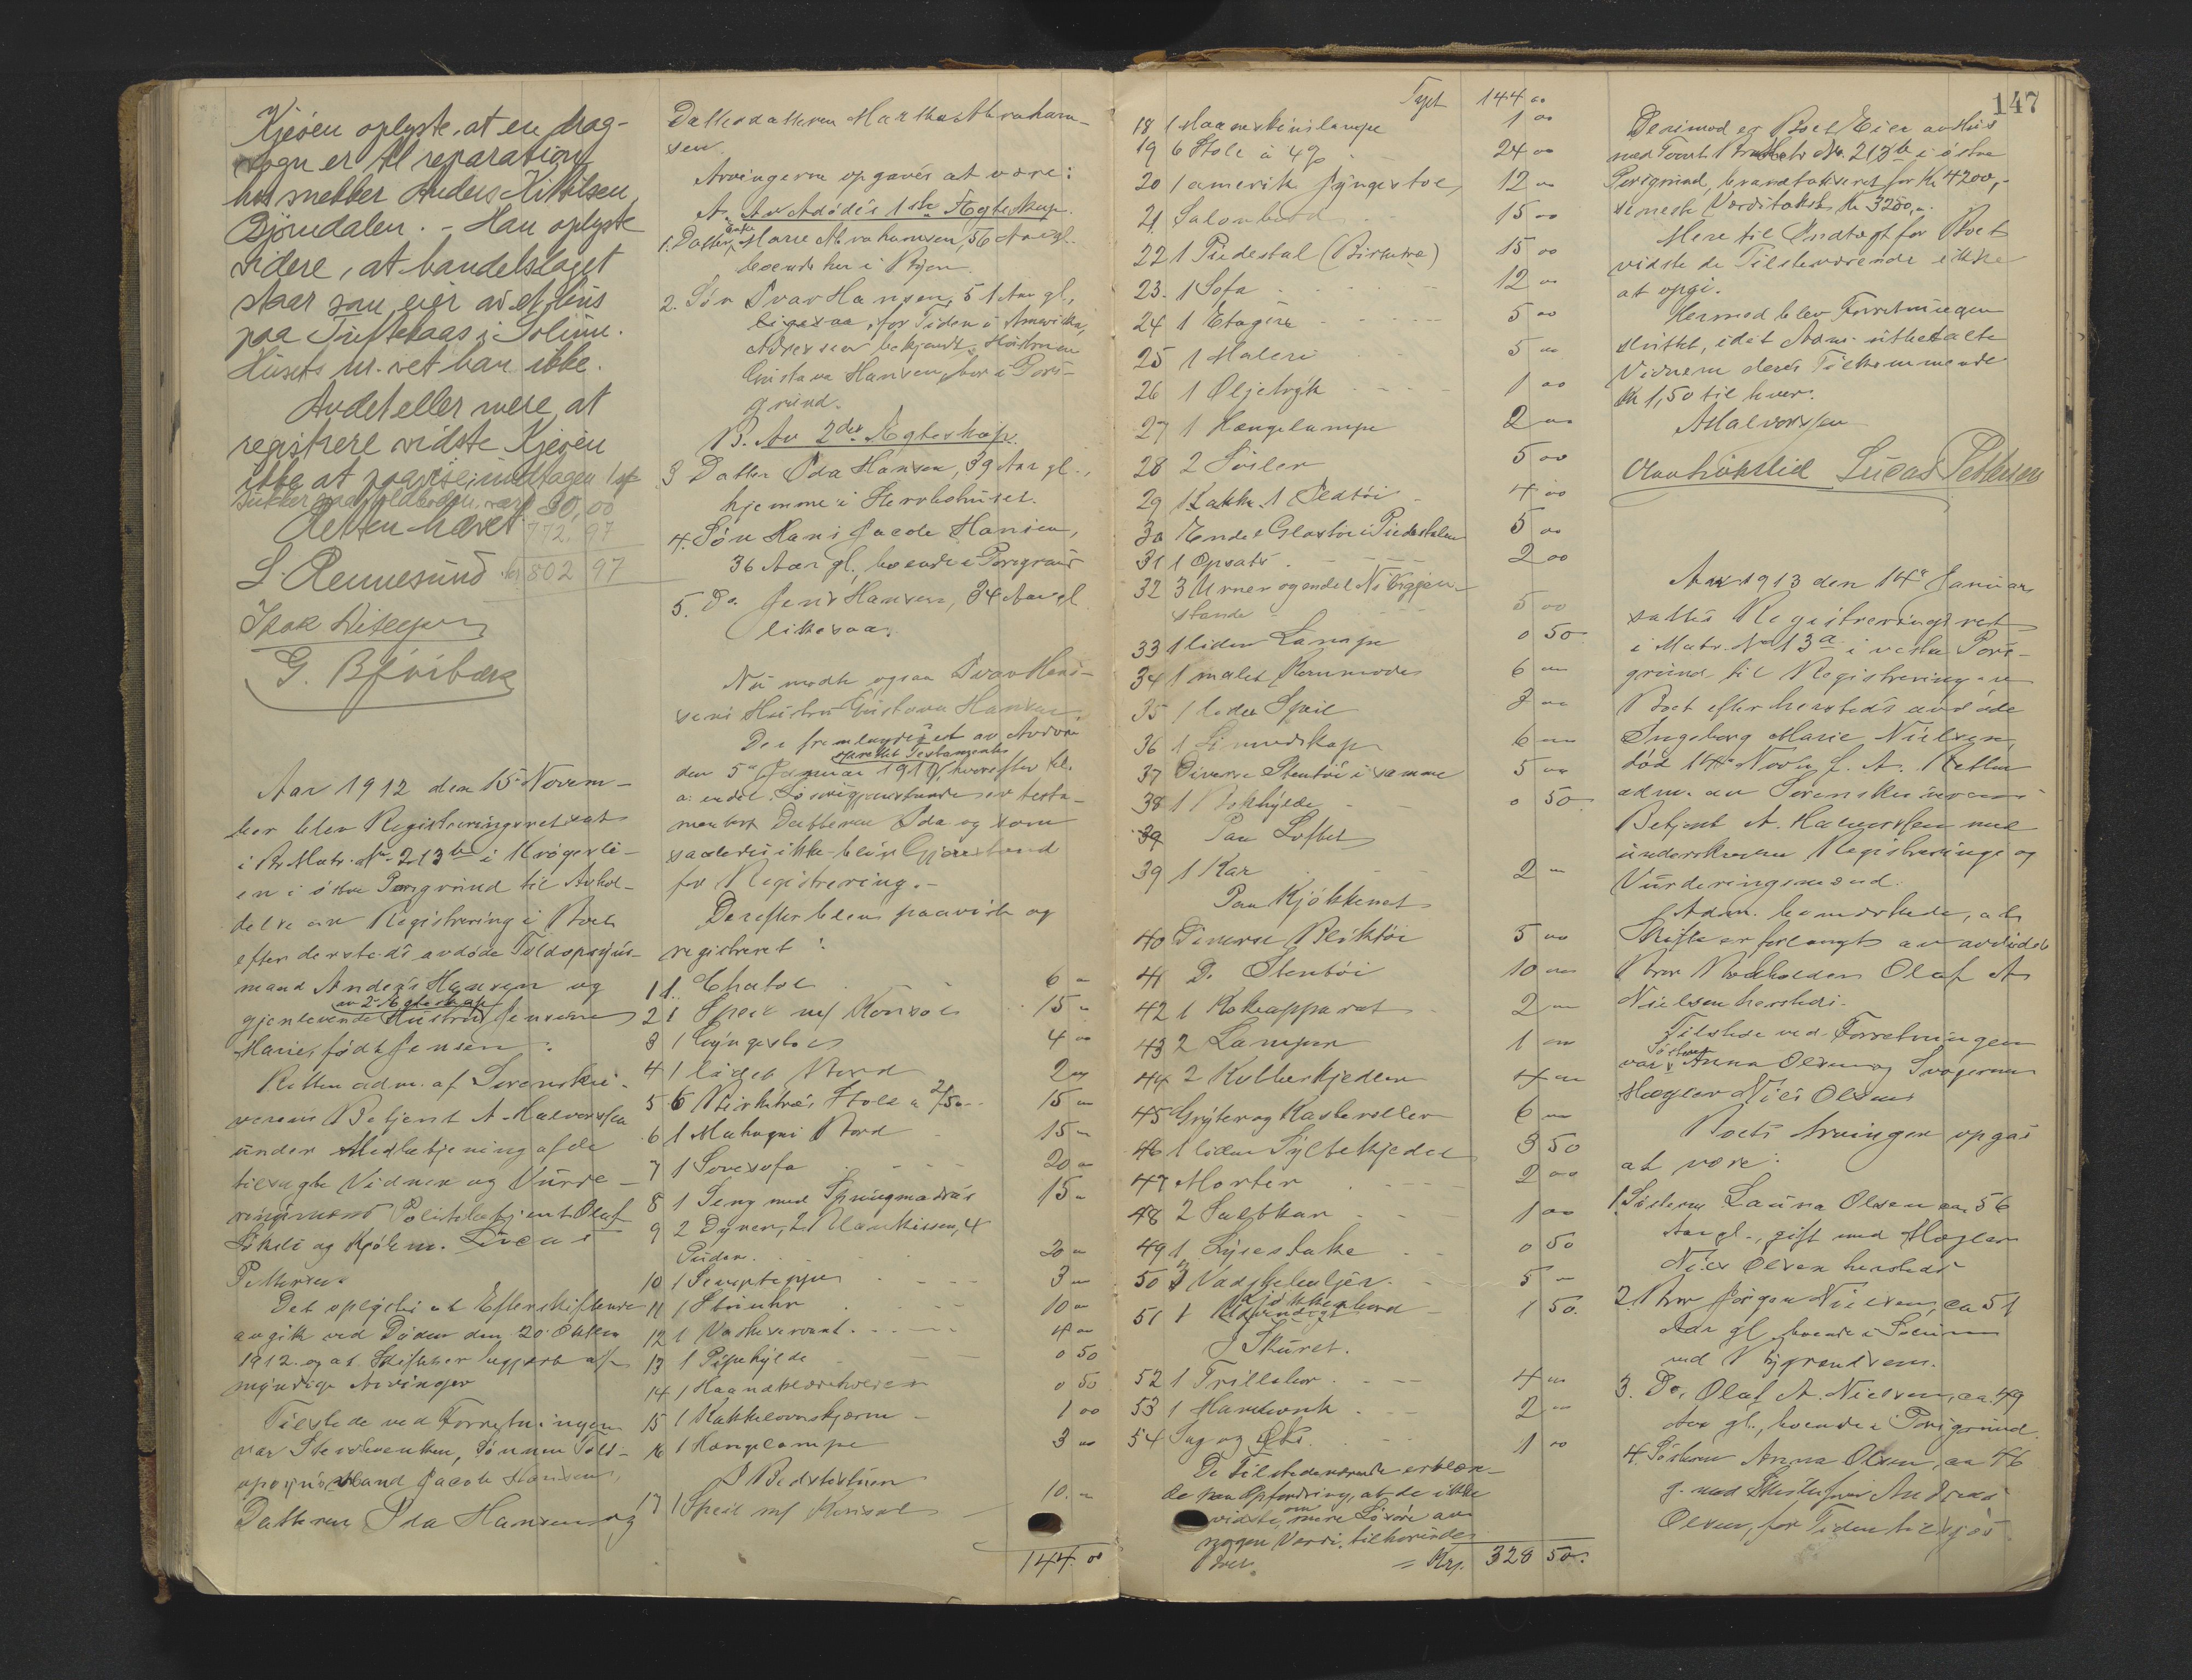 Kjeøen oplyste, at en drag-
vogn er til reparation
hos snekker Anders Kittilsen,
Bjørndalen. - Han oplyste
videre, at handelslaget
staar som eier av et hus
paa Tuftekaas i Solum.
Husets nr. vet han ikke.
Andet eller mere at
registrere vidste Kjeøen
ikke at paavise, undtagen 1 st
30,00
Retten hævet. 772,97
L. Rennesund kr 802 97
Isak
G. Bjørnbæk
Aar 1912 den 15 Novem-
ber blev Registreringsret sat
i Br. Matr. No 213 b i
en i østre Porsgrund til Avhol-
delse av Registrering i Boet
efter dersteds avdøde Toldopsyns-
mand Anders Hansen og
av 2. Egteskap
gjenlevende Hustru
Marie, født Jensen:
Retten adm. af Sorenskri-
verens Betjent A. Halvorsen
under Medbetjening af de
tilsagte Vidner og Vurde-
ringsmænd Politibetjent Olaf
og Kjøbm. Lucas
Pettersen.
Det oplystes at Efterskiftende
avgik ved Døden den 20 Oktbr
1912 og at Skiftet er begjært af
myndige Arvinger
Tilstede ved Forretningen
var Sterboenken, Sønnen Told-
opsynsmand Jacob Hansen,
Datteren Ida Hansen og
Datterdatteren Martha Abraham-
sen.
Arvingerne opgaves at være:
A. Av Avdødes 1ste Egteskap.
1. Datter, Enke Marie Abrahamsen, 56 Aar gl.
boende her i Byen.
2. Søn Ivar Hansen, 51 Aar gl.,
ligesaa, for Tiden i Amerika,
Adressen bekjendt. Hustruen
Gustava Hansen, bor i Pors-
grund.
B. Av 2det Egteskap.
3 Datter Ida Hansen, 39 Aar gl.,
hjemme i Sterbohuset.
4. Søn Hans Jacob Hansen,
36 Aar gl. boende i Porsgrund
5. Do Jens Hansen, 34 Aar gl
likesaa.
Nu mødte ogsaa Ivar Han-
sens Hustru Gustava Hansen.
Der fremlagdes et av Avdøde
oprettet Testamente
den 5te Januar 191 hvorefter bl.
a. endel Løsøregjenstande er testa-
mentert Datteren Ida og som
saaledes ikke blev Gjenstand
for Registrering. -
Derefter blev paavist og
registreret:
1 1 Chatol 6 "
2 1 Speil m/ Konsol 15 "
3 1 Gyngestol 4 00
4 1 lidet Bord 2 00
5 6 Birketræs Stole a 2/50 15 "
6 1 Mahogni Bord 15 "
7 1 Sovesofa 20 "
8 1 Seng med Springmadras 15 "
9 2 Dyner, 2 Underkissen, 4
Puder. 20 "
10 1 Sengeteppe 3 "
11 1 Stueuhr 10 "
12 1 Vaskeservant 4 "
13 1 Pipehylde 0 50
14 1 Haandklæderholder 0 50
15 1 Kakkelovnskjærm 1 00
16 1 Hængelampe 3 00
I Bedstestuen
17 1 Speil m/ Konsol 10. "
144. 00
Fløt 144 00
18 1 Maaneskinslampe 1 00
19 6 Stole à 4% 24 00
20 1 amerik Gyngestol 12 00
21 Salonbord 15 00
22 1 Piedestal (Birketræ) 15 00
23. 1 Sofa 12 00
24 1 Etagere 5 00
25 1 Maleri 5 00
26 1 Oljetryk 1 00
27 1 Hængelampe 2 00
28 2 Søiler 5 00
29 4 00
30 Endel Glastøi i Piedestalen 5 00
31 1 Opsats 2 00
32 3 Urner og endel Nibsgjen-
stande 5 00
33 1 liden Lampe 0 50
34 1 malet Kommode 6 00
35 1 lidet Speil 3 00
36 1 Linnedskap 6 00
37 Diverse Stentøi i samme 5 00
38 1 Bokhylde 0 50
39 Paa Loftet
39 1 Kar 2 "
Paa Kjøkkenet
40 Diverse Bliktøi 5 00
41 Do Stentøi 10 00
42 1 Kokeapparat 2 00
43 2 Lamper 1 00
44 2 Kobberkjedler 4 00
45 Gryter og Kasteroller 6 00
46 1 liden Syltekjedel 3 50
47 Morter 2 00
48 2 Saltkar 1 00
49 1 Lysestake 0 50
50 3 Vadskebaljer 5 "
51 1 Kjøkkenbord 1 50.
I Skuret.
52 1 Trillebør 4 00
53 1 Havebænk 2 00
54 Sag og Øks 1 00
De Tilstedeværende erklær-
te paa Opfordring, at de ikke
vidste om mere Løsøre av
nogen Værdi, tilhørende
Boet. = Krs. 328 50.
147
Derimod er Boet Eier av Hus
med Tomt Br. Matr No. 213 b i østre
Porsgrund, brandtakseret for Kr 4200,-
seneste Værditakst Kr 3200,-.
Mere til Indtægt for Boet
vidste de Tilstedeværende ikke
at opgi.
Hermed blev Forretningen
sluttet, idet Adm. utbetalte
Vidnerne deres Tilkommende
Kr 1,50 til hver.
A Halvorssen
Lucas Pettersen
Aar 1913 den 14de Januar
sattes Registreringsret
i Matr. No 13 a i vestre Pors-
grund til Registrering av
Boet efter hersteds avdøde
Ingeborg Marie Nielsen,
død 14de Novbr. f. A. Retten
adm. av Sorenskriverens
Betjent A. Halvorssen med
underskrevne Registrerings og
Vurderingsmænd.
Adm. bemerkede, at
Skifte er forlangt av avdødes
Bror Olaf A
Nielsen hersteds.
Tilstede ved Forretningen
var Søsteren Anna Olsen og Svogeren
Mægler Niels Olsen
Boets Arvinger opgas
at være:
1. Søsteren Laura Olsen ca. 56
Aar gl., gift med Mægler
Niels Olsen hersteds
2. Bror Jørgen Nielsen, ca 51
Aar gl boende i Solum
ved
3. Do. Olaf A. Nielsen, ca. 49
Aar gl., boende i Porsgrund.
4. Søsteren Anna Olsen, ca 46
g. med Andreas
Olsen, for Tiden tilsjøs